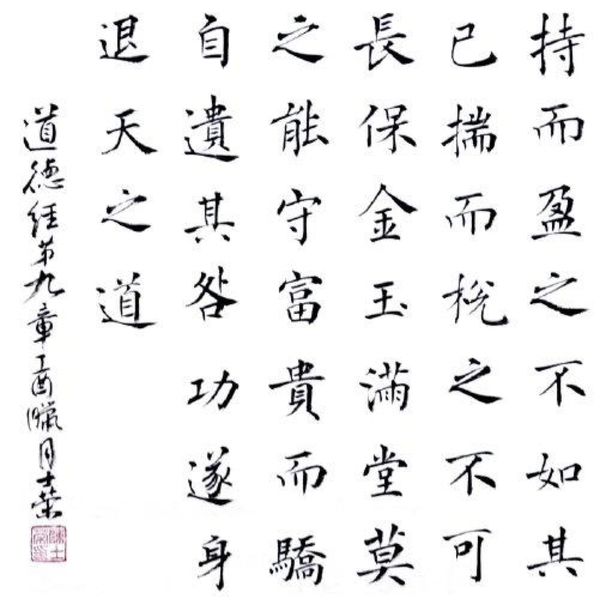 持而盈之不如其
已揣而梲之不可
長保金玉滿堂莫
之能守富貴而驕
自遺其咎功遂身
退天之道
道德經第九章丁酉臘月士榮